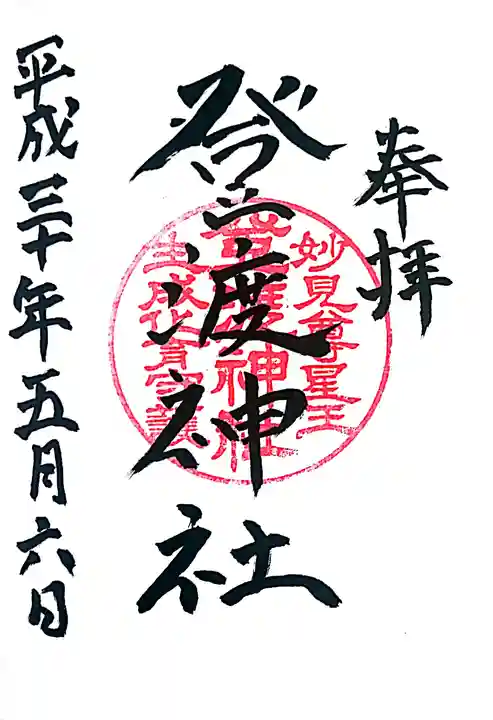 奉拝
登渡神社
妙見尊星王
登渡神社
生成化育守護
平成三十年五月六日